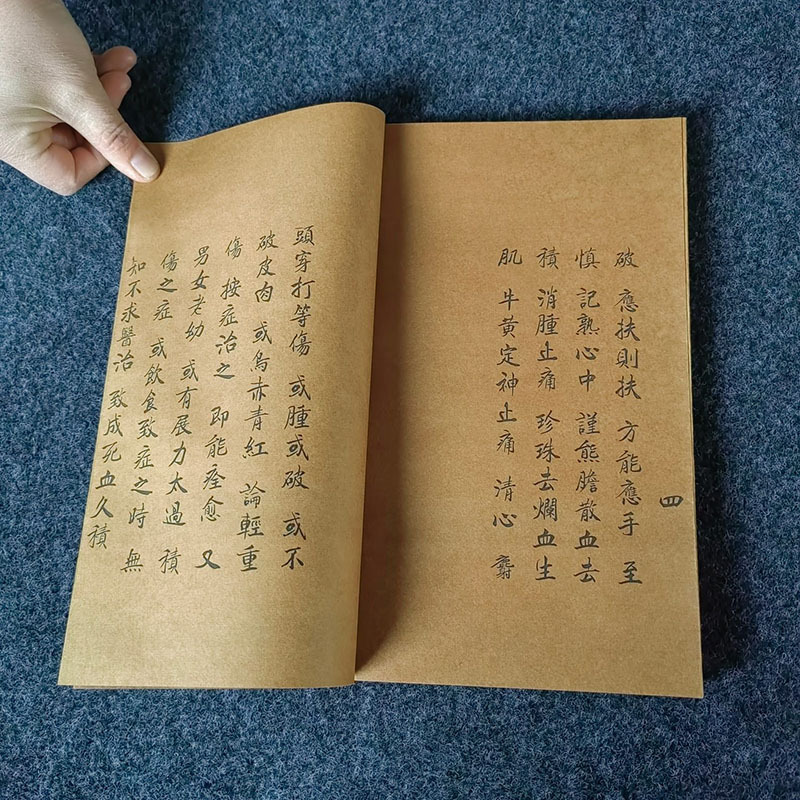 四
破 應扶則扶 方能應手 至
慎 記熟心中 謹熊膽散血去
積 消腫止痛 珍珠去爛血生
肌 牛黃定神止痛 清心 麝
頭穿打等傷 或腫或破 或不
破皮肉 或烏赤青紅 論輕重
傷 按症治之 即能痊愈 又
男女老幼 或有展力太過 積
傷之症 或飲食致症之時 無
知不求醫治 致成死血久積